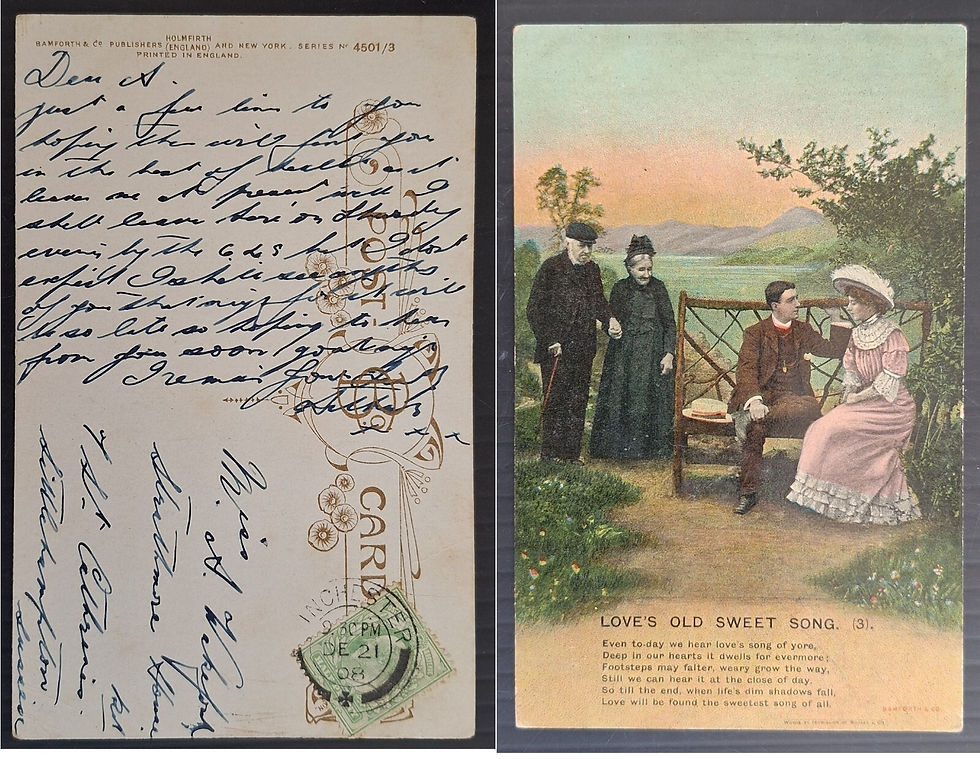 HOLMFIRTH
BAMFORTH & Co PUBLISHERS (ENGLAND) AND NEW YORK. SERIES No 4501/3
PRINTED IN ENGLAND.
Dear A.
just a few lines to you
hoping they will find you
in the best of health as it
leaves me at present well I
shall leave here on Thursday
evening by the 6.25 but I don't
expect I shall see
of you that night
so late so hoping to hear
from you soon
I remain
x x x
POST CARD
Miss A.
Strathmore House
4 St Catherine's Rd
Littlehampton
Sussex
INCHESTER
PM
DE 21
08
LOVE'S OLD SWEET SONG. (3).
Even to-day we hear love's song of yore,
Deep in our hearts it dwells for evermore;
Footsteps may falter, weary grow the way,
Still we can hear it at the close of day,
So till the end, when life's dim shadows fall,
Love will be found the sweetest song of all.
BAMFORTH & CO.